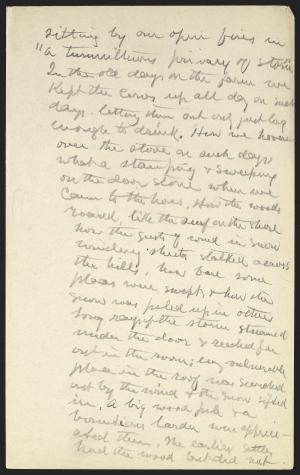 sitting by our open fires in
"a tumultuous privacy of storm"
In the old days on the farm we
kept the cows up all day on such
days, letting them out only just long
enough to drink. How we hovered
over the stove on such days
what a stamping & sweeping
on the door stone when we
came to the house, How the woods
roared, like the surf on the shore
how the gusts of wind in snow
winding sheets stalked across
the hills, how bare some
places were swept & how the
snow was piled up in others
long rays of the storm streamed
under the door & reached far
out in the room; any vulnerable
place in the roof was searched
out by the wind & the snow sifted
in. A big wood pile & a
bounteous larder were appreci-
ated then. The earlier settlers
had the wood but did not